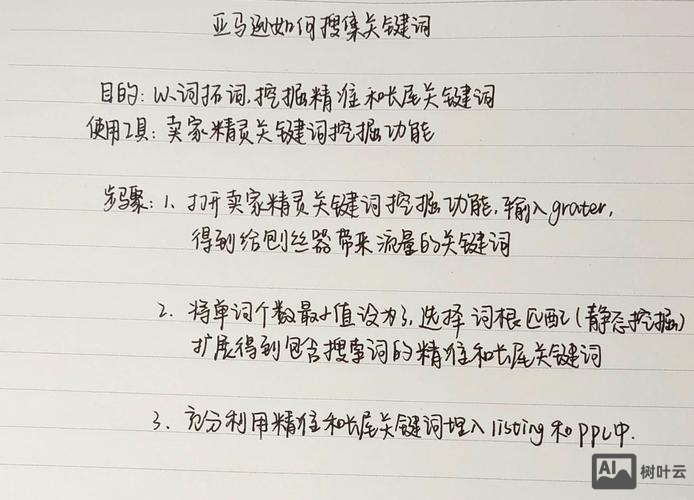 亚马逊如何搜集关键词
目的：以词拓词，挖掘精准和长尾关键词
使用工具：卖家精灵关键词挖掘功能
步骤：1、打开卖家精灵关键词挖掘功能，输入grater，
得到给刨丝器带来流量的关键词
2、将单词个数最小值设为3，选择词根匹配（静态挖掘）
扩展得到包含搜索词的精准和长尾关键词
3、充分利用精准和长尾关键词埋入listing和ppc中.
AI 树叶云